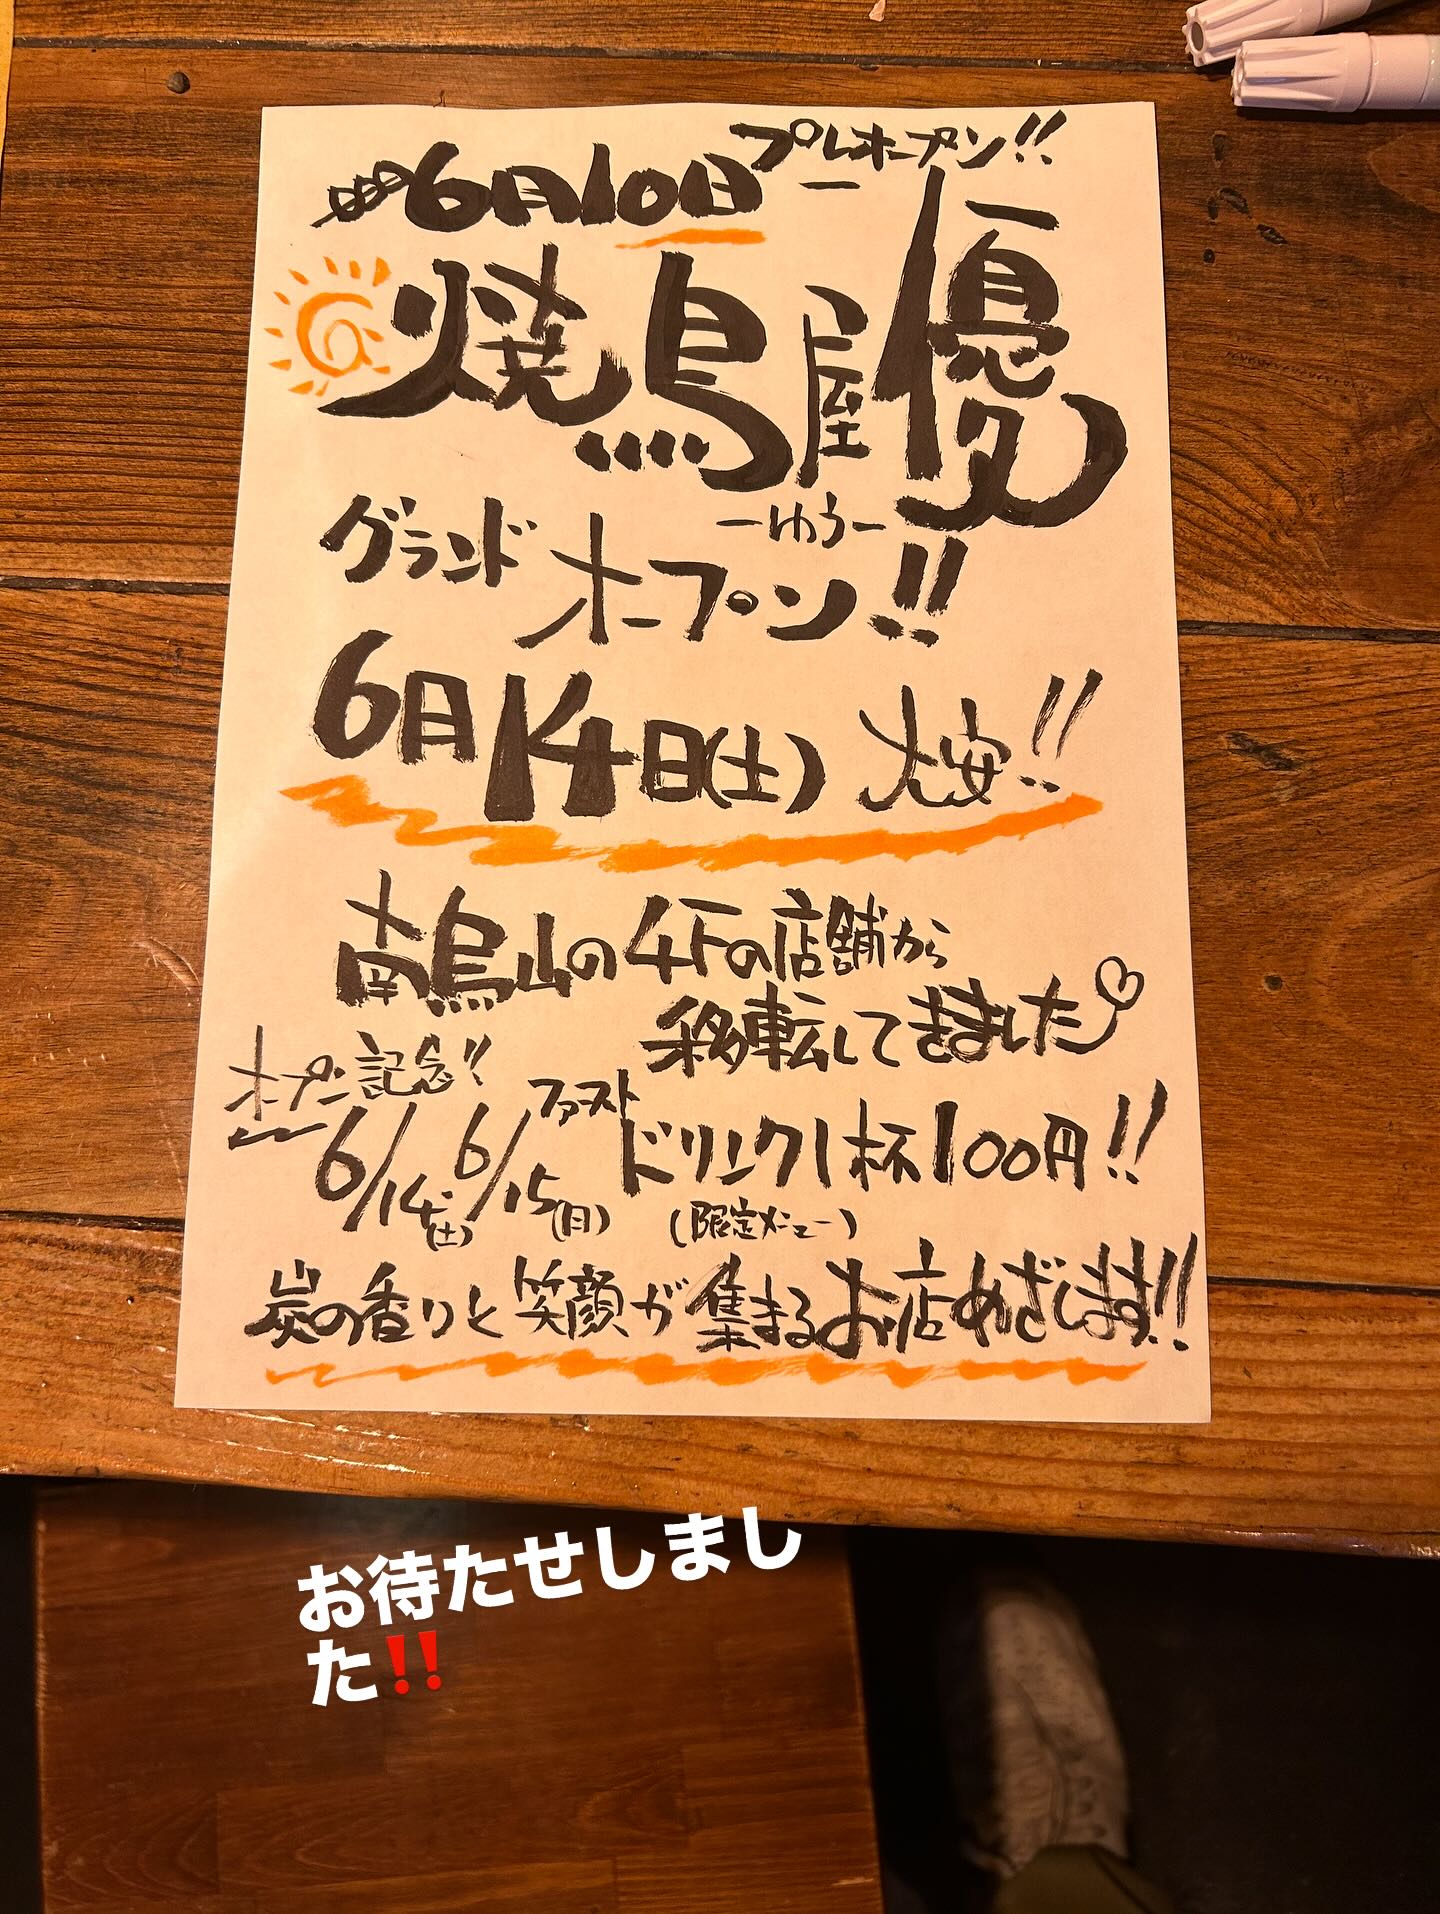 6月10日プレオープン!!
焼鳥屋優
ーゆうー
グランドオープン!!
6月14日(土)大安!!
南烏山の4Fの店舗から
移転してきました
オープン記念!!
6/14(土) 6/15(日) ファーストドリンク1杯100円!!
(限定メニュー)
炭の香りと笑顔が集まるお店めざします!!
お待たせしまし
た‼️